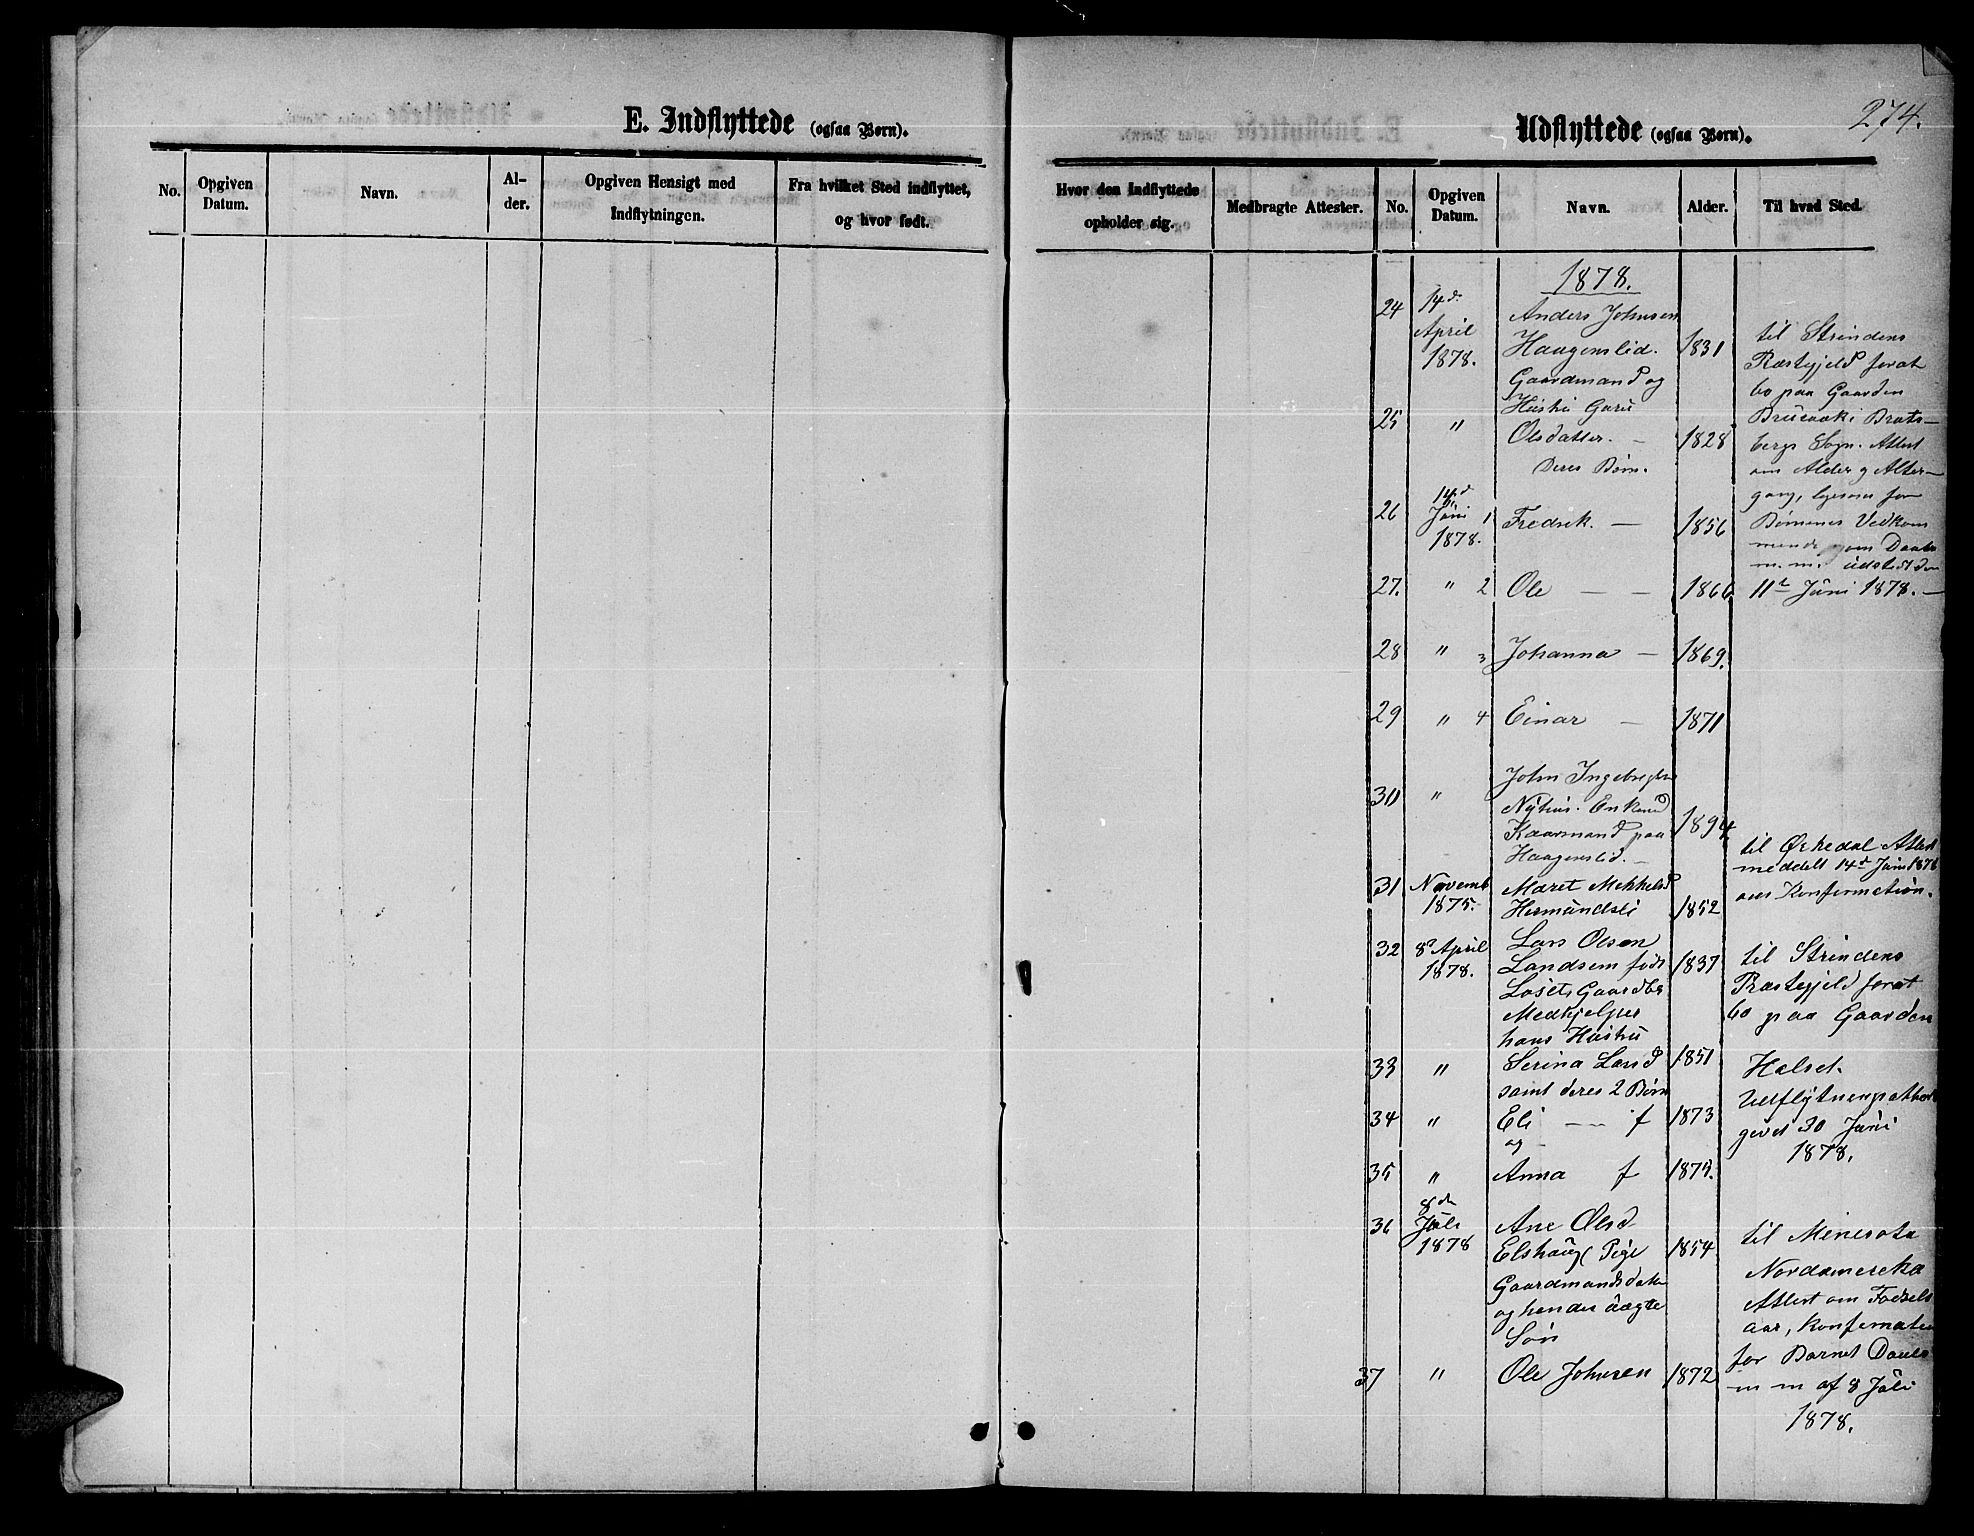 E. Indflyttede (ogsaa Børn).
No.
Opgiven Datum.
Navn.
Al-
der.
Opgiven Hensigt med
Indflytningen.
Fra hvilket Sted indflyttet,
og hvor født.
Udflyttede (ogsaa Børn).
274.
Hvor den Indflyttede
opholder sig.
Medbragte Attester.
No.
Opgiven
Datum.
Navn.
Alder.
Til hvad Sted.
1878.
24 14d April 1878. Anders Johnsen
Haagenslid. 1831
Gaardmand og
25 " Hustru Guru
Olsdatter. – 1828
Deres Børn.
til Strindens
Præstegjeld forat
bo paa Gaarden
i Brats-
berg Sogn. Attest
om Alder og Alter-
gang, ligesom for
Børnenes Vedkom
mende om Daab
m.m. udstedt den
11te Juni 1878. –
26 14d Juni 1878. 1 Fredrik. – 1856
27. " 2 Ole – – 1866
28 " 3 Johanna – 1869.
29 " 4 Einar – 1871
30 " John Ingebrigtsen
Nyhus. Enkemd
Kaarmand paa 1894
Haagenslid. –
31 Novemb 1875. Maret Mekkelsd
Hermundsli 1852
til Orkedal Attest
meddelt 14d Juni 1878
om Konfirmation.
32 8d April 1878. Lars Olsen
Landsem føds 1837
Losets Gaardbr
Medhjelper
hans Hustru
33 " Serina Larsd 1851
samt deres 2 Børn
34 " Eli – – f 1873
og –
35 " Anna f 1875.
til Strindens
Præstegjeld forat
bo paa Gaarden
Halset.
Udflytningsattest
givet 30 Juni
1878.
36 8de Juli 1878 Ane Olsd
Elshaug Pige 1854
Gaardmandsdatter
og hendes uægte
Søn
37 " Ole Johnsen 1872
til Minesota
Nordamerika
Attest om Fødsels
aar, Konfirmation
for Barnet Daab
m m af 8 Juli
1878.